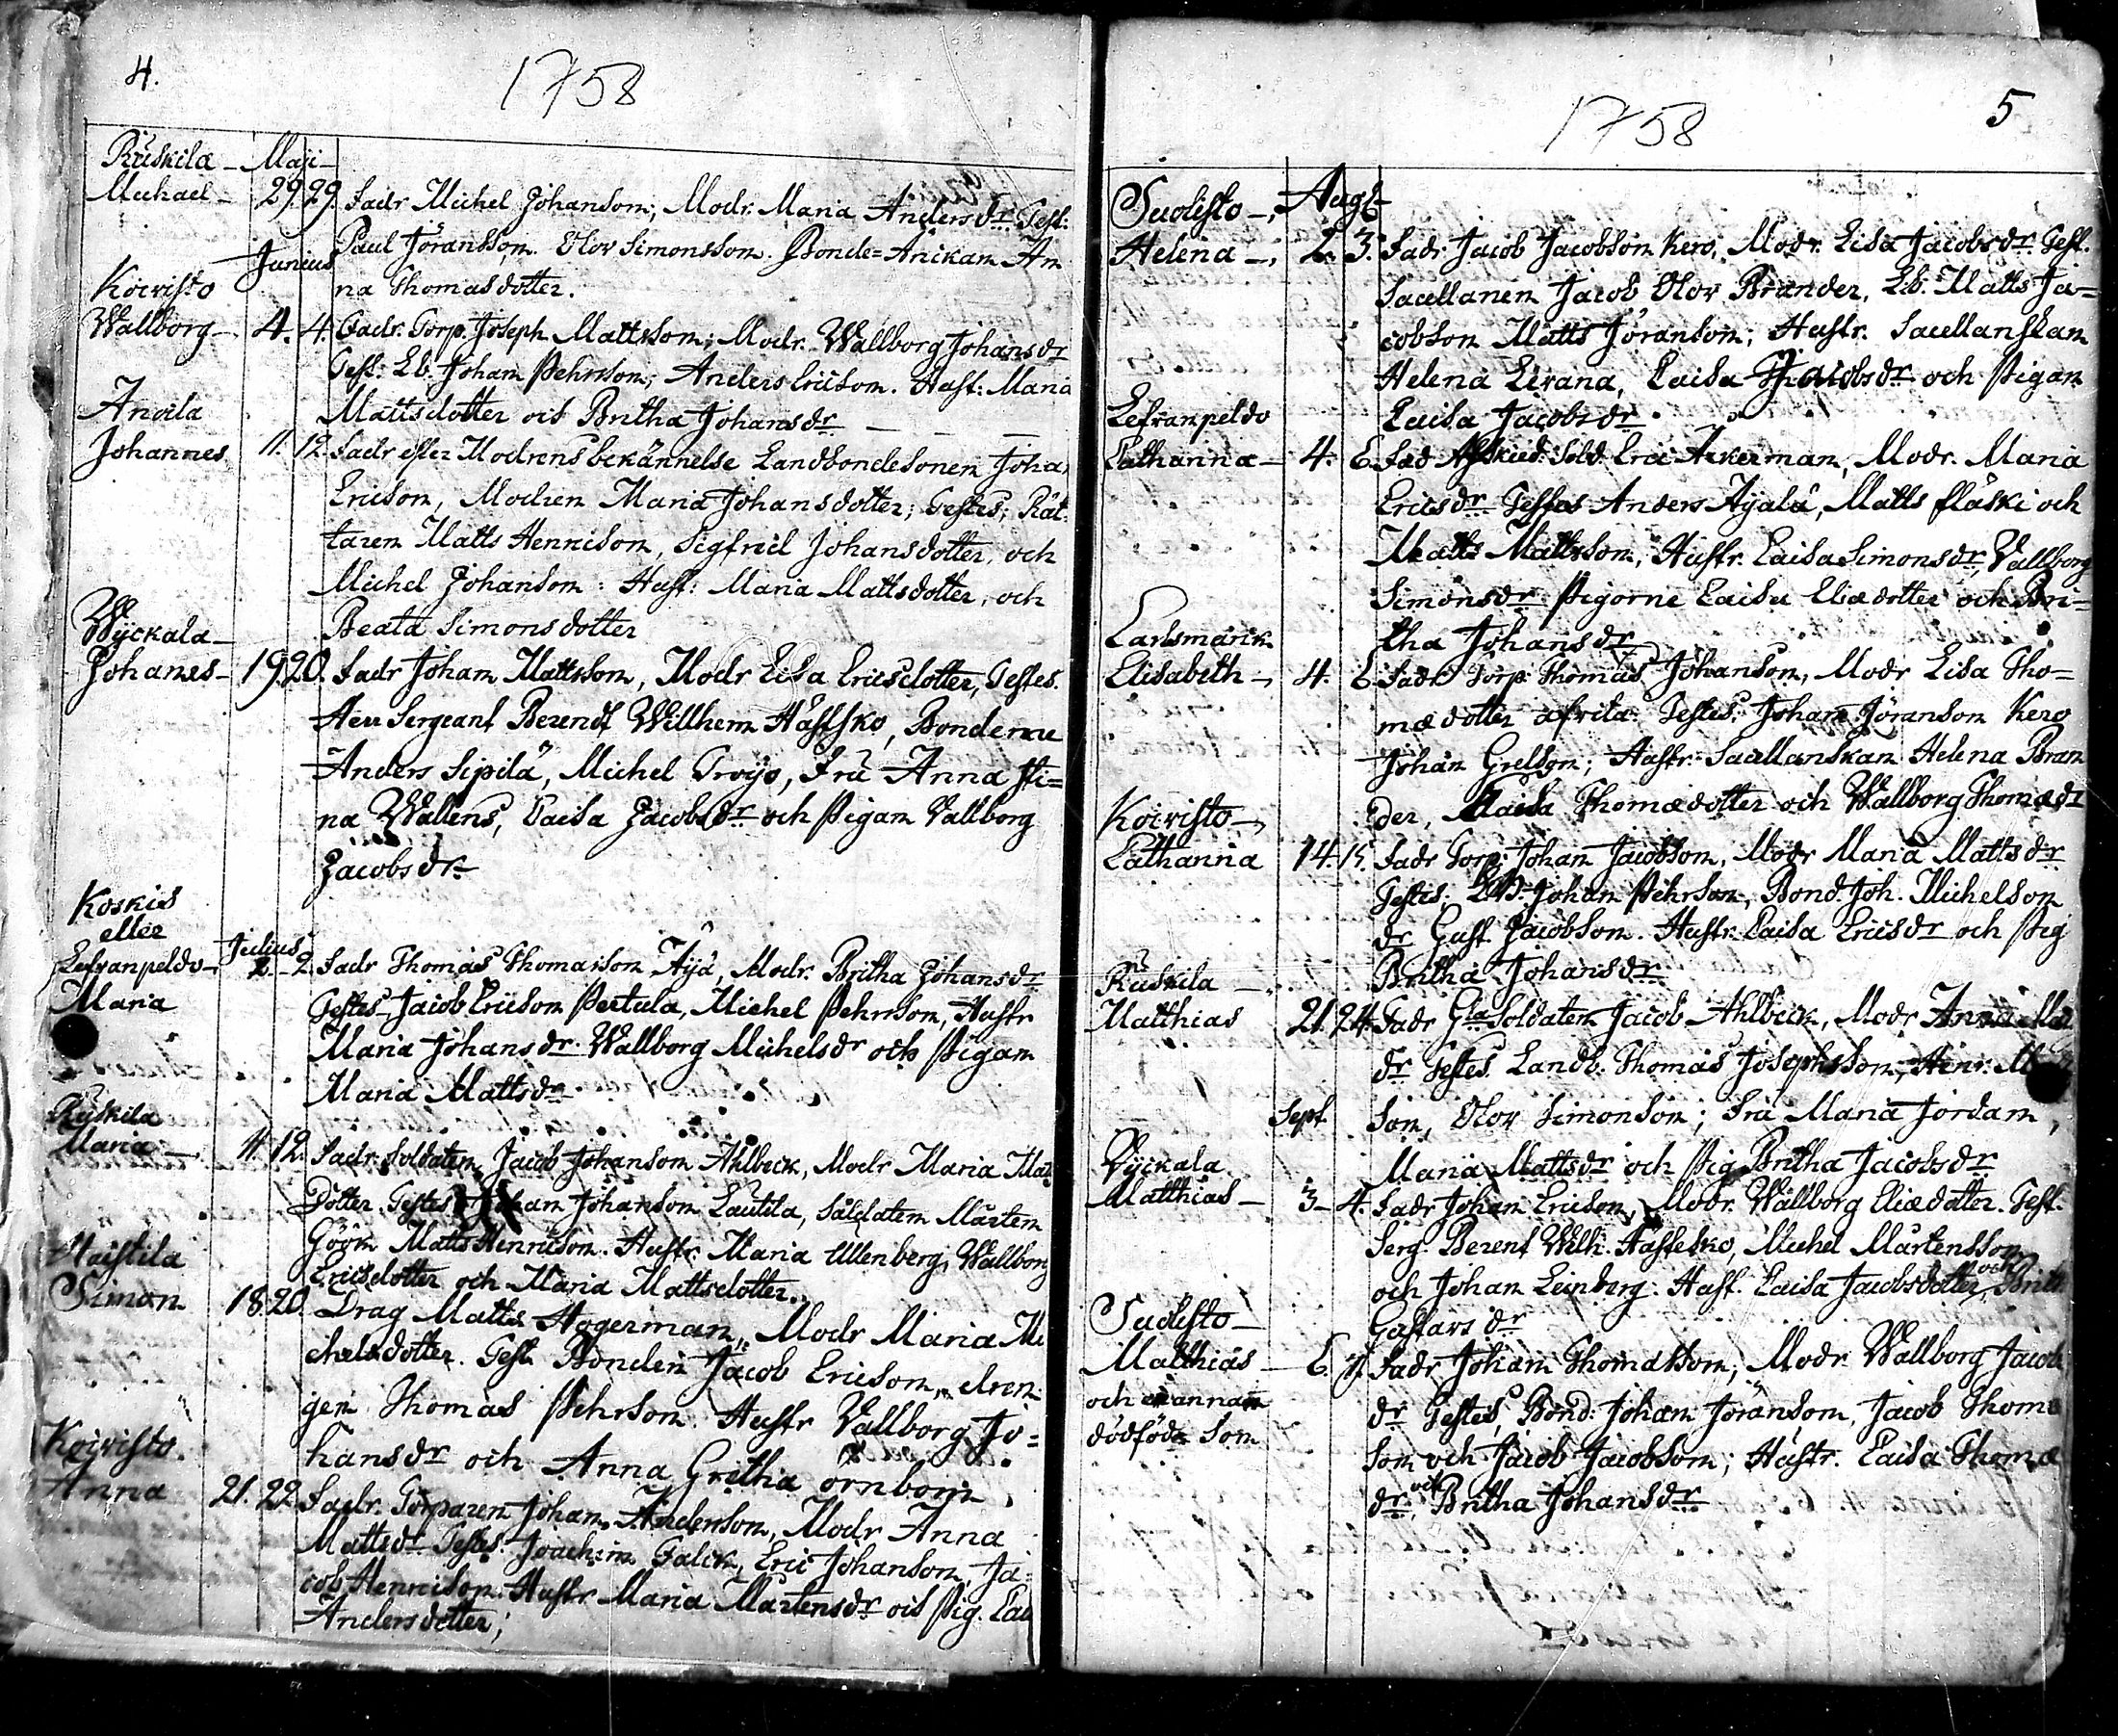 4.
1758
Ruskila - Maji -
Michael - 29. 29. Fadr Michel Johansson; Modr. Maria Andersdr Test:
Paul Jöransson. Olov Simonsson. Bonde= Änckan An
Junius
Koivisto na Thomasdotter.
Wallborg - 4. 4. Fadr. Torp. Joseph Mattsson; Modr. Wallborg Johansdr
Test: Lb. Johan Pehrsson; Anders Ericson. Hust: Maria
Anoila Mattsdotter och Britha Johansdr
Johannes 11. 12. Fadr efter Modrens bekännelse Landbondesonen Joha
Ericson, Modren Maria Johansdotter; Testes; Rät-
taren Matts Henricson, Sigfrid Johansdotter, och
Michel Johanson: Hust: Maria Mattsdotter, och
Wÿckala - Beata Simonsdotter
Johanes - 19. 20. Fadr Johan Mattsson, Modr Lisa Ericsdotter, Testes.
Herr Sergeant Berendt Willhem Hästsko, Bonderne
Anders Sipilä, Michel Troijs, Fru Anna Sti=
na Wallens, Caisa Jacobsdr och Pigan Vallborg
Jacobsdr
Koskis
eller
Lefvanpeldo - Julius 2. - 2. Fadr Thomas Thomasson Äijä, Modr. Britha Johansdr
Maria Testes Jacob Ericson Pertula, Michel Pehrsson, Hustr
Maria Johansdr. Wallborg Michelsdr och Pigan
Maria Mattsdr
Ruskila
Maria - 11. 12. Fadr. Soldaten Jacob Johanson Ahlbeck, Modr Maria Mats
dotter. Testes Johan Johanson Lautila, Såldaten Mårten
Göök Matts Henricson. Hustr. Maria Ullenberg, Wallborg
Maistila Ericsdotter och Maria Mattsdotter.
Simon 18. 20. Drag Matts Hogerman, Modr Maria Mi
chelsdotter. Test. Bonden Jacob Ericson, dren-
gen Thomas Pehrson. Hustr Vallborg Jo=
Koivisto. hansdr och Anna Gretha Örnborn
Anna 21. 22. Fadr. Torparen Johan Anderson, Modr Anna
Mattsdr Testes. Joachim Falck, Eric Johanson, Ja-
cob Henricson. Hustr Maria Mårtensdr och Pig. Cai
Andersdotter;
5
1758
Suolisto -, Augt
Helena -, 2. 3. Fadr Jacob Jacobson Kero, Modr. Lisa Jacobsdr Test.
Sacellanen Jacob Olov Brander, Lb. Matts Ja=
cobson Matts Jöranson; Hustr. Sacellanskan
Helena Levana, Caisa Jacobsdr och Pigan
Lefvanpeldo Caisa Jacobsdr.
Catharina - 4. 6. Fad Afskied. Sold. Eric Åkerman, Modr. Maria
Ericsdr Testes Anders Äijälä, Matts Fläski och
Matts Mattsson, Hustr. Caisa Simonsdr, Vallborg
Simonsdr Pigorne Caisa Eliædotter och Bri-
Carlsmarck tha Johansdr
Elisabeth -, 4. 6. Fadr Torp Thomas Johanson, Modr Lisa Tho=
mædotter Testes: Johan Jöranson Kero
Johan Grelsson; Hustr Sacellanskan Helena Bran
Koivisto -, der, Caisa Thomædotter och Wallborg Thomædr
Catharina 14. 15. Fadr Torp. Johan Jacobson, Modr Maria Mattsdr
Testes, Lb. Johan Pehrson, Bond. Joh. Michelson
dr Gust. Jacobsom. Hustr. Caisa Ericsdr och Pig
Ruskila - Britha Johansdr
Matthias 21. 24. Fadr Gla Soldaten Jacob Ahlbeck, Modr Anna
dr Testes. Landb. Thomas Josephsson, Henr.
Sept. son, Olov Simonson; Fru Maria Jordan,
Wÿckala Maria Mattsdr och Pig Britha Jacobsdr
Matthias - 3 - 4. Fadr Johan Ericson, Modr. Wallborg Eliædotter. Test.
Serg. Berent Wilh. Hästesko, Michel Mårtensson
och Johan Leinberg. Hust. Caisa Jacobsdotter, och Brit
Suolisto - Gustavsdr
Matthias - 6. 7. Fadr Johan Thomasson, Modr Wallborg Jacob
och en annan dr Testes, Bond: Johan Jöranson, Jacob Thoma
dödföda Son son och Jacob Jacobson; Hustr. Caisa Thomæ
dr. och Britha Johansdr